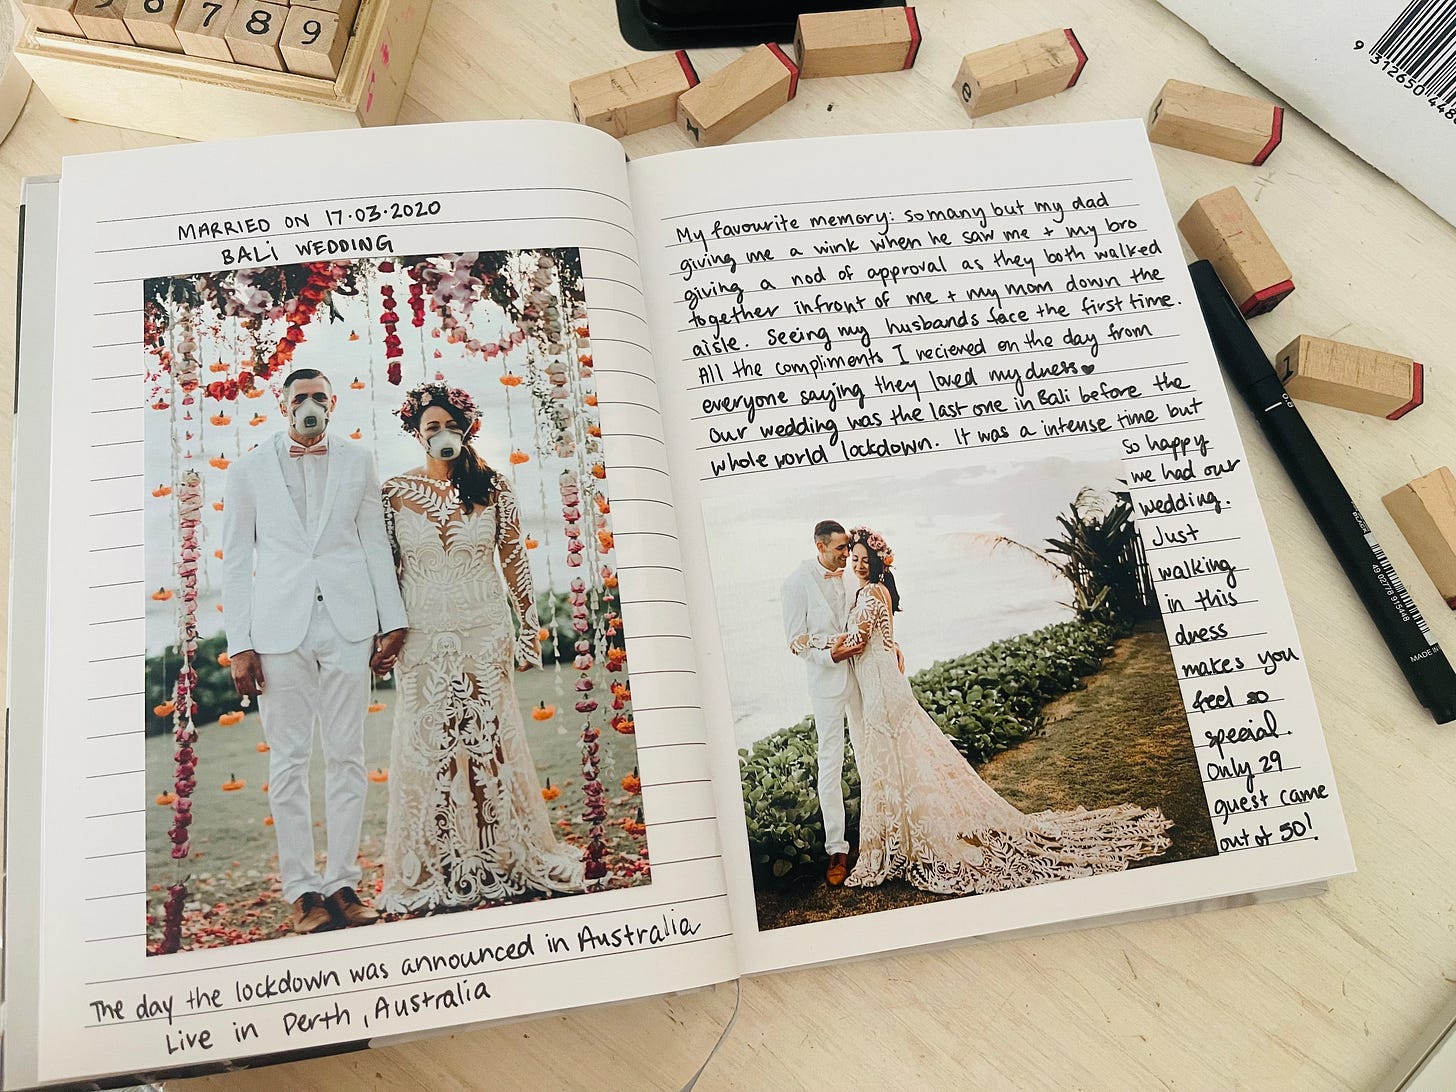 MARRIED ON 17.03.2020
BALi WEDDING
The day the lockdown was announced in Australia
Live in Perth, Australia
My favourite memory: so many but my dad
giving me a wink when he saw me + my bro
giving a nod of approval as they both walked
together infront of me + my mom down the
aisle. Seeing my husbands face the first time.
All the compliments I recieved on the day from
everyone saying they loved my dress♥
Our wedding was the last one in Bali before the
whole world lockdown. It was a intense time but
so happy
we had our
wedding.
Just
walking
in this
dress
makes you
feel so
special.
Only 29
guest came
out of 50!
6 7 8 9
9 312650 448
0.8
BLACK
49 02778 915448
MADE IN